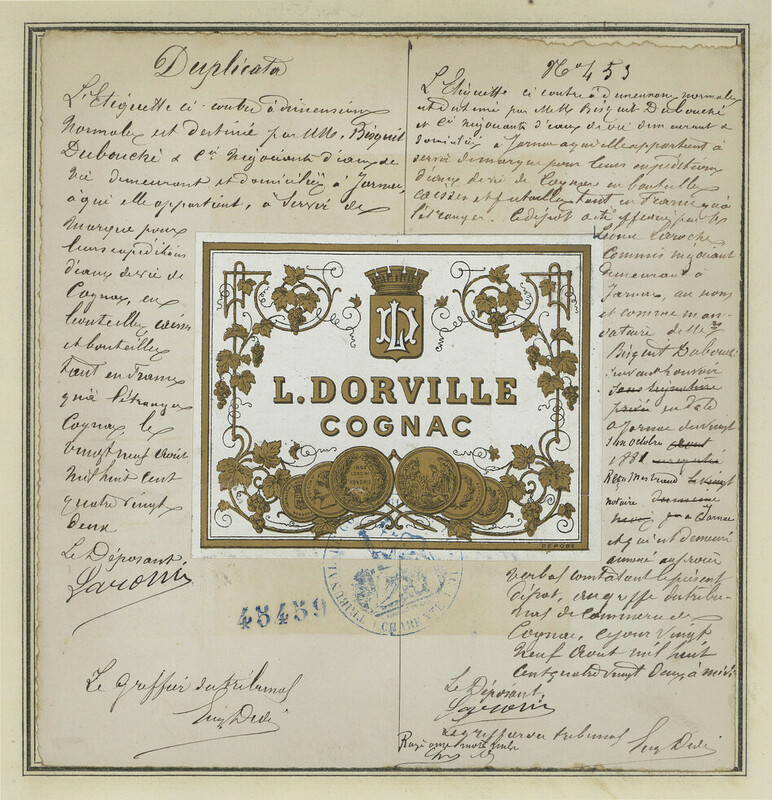 Duplicata
L'Etiquette ci-contre à dimensions
normales est destinée par MM. Bisquit
Dubouché & Cie Négociants d'eaux de
vie demeurant et domiciliés à Jarnac,
à qui elle appartient, à servir de
marque pour
leurs expéditions
d'eaux de vie de
Cognac, en
bouteilles, caisses
et bouteilles
tant en France
qu'à l'étranger
Cognac le
vingt neuf Août
mil huit cent
quatre vingt
deux
Le Déposant
Laroche
Le greffier du tribunal
Eug Dedé
45459
N° 453
L'Etiquette ci contre à dimension normales
est destinée par MM. Bisquit Dubouché
et Cie négociants d'eaux de vie demeurant &
domiciliés à Jarnac à qui elle appartient à
servir de marque pour leurs expéditions
d'eaux de vie de Cognac en bouteilles
caisses et futailles tant en France qu'à
l'étranger. Ce dépôt a été effectué par
Léonce Laroche
Commis négociant
demeurant à
Jarnac, au nom
et comme man-
dataire de MM
Bisquit Dubouché
suivant pouvoir
sous signature
privée en date
à Jarnac du vingt
octobre
1881
Reçu
notaire
à Jarnac
et qui est demeuré
annexé au procès
verbal constatant le présent
dépôt, au greffe du tribu-
nal de commerce de
Cognac, ce jour vingt
neuf Août mil huit
cent quatre vingt deux à midi
Le Déposant,
Laroche
Le greffier du tribunal
Eug Dedé
Rayé mots
L. DORVILLE
COGNAC
LD
1862
LONDINI
HONORIS
DEPOSE
TRIBUNAL
CHARENTE